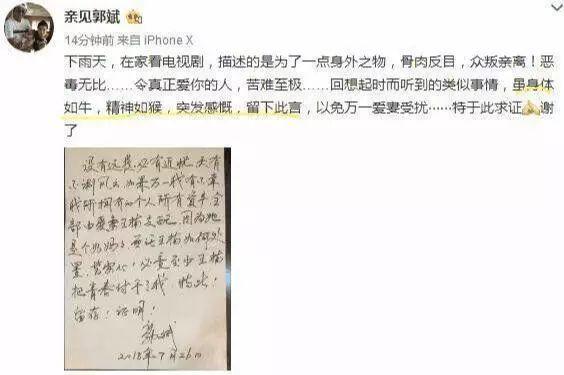 亲见郭斌
14分钟前 来自 iPhone X
下雨天，在家看电视剧，描述的是为了一点身外之物，骨肉反目，众叛亲离！恶
毒无比……令真正爱你的人，苦难至极……回想起时而听到的类似事情，虽身体
如牛，精神如猴，突发感慨，留下此言，以免万一爱妻受扰……特于此求证🙏谢
了
没有远虑必有近忧 天有
不测风云 如果万一我有不幸
我所拥有的个人所有资产全
部由爱妻王榆支配 因为她
是个好妈妈
置
把青春付于了我 特此！
留存！证明！
郭斌
2018年7月26日